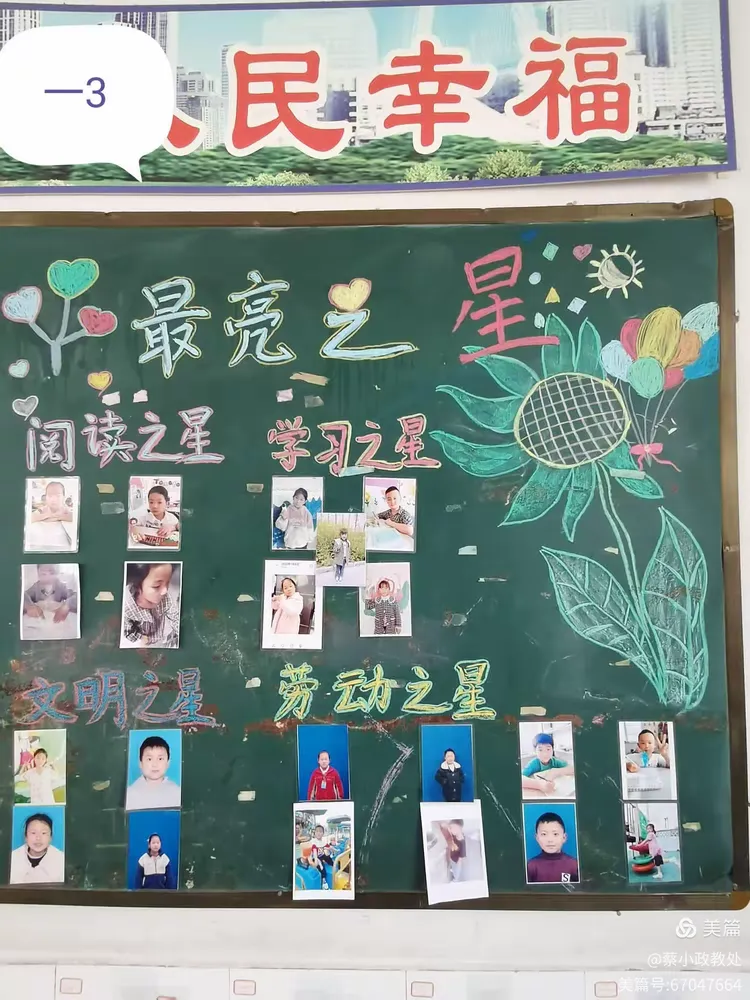 一3
民幸福
最亮之星
阅读之星
学习之星
文明之星
劳动之星
S
美篇
@蔡小政教处
美篇号:67047664